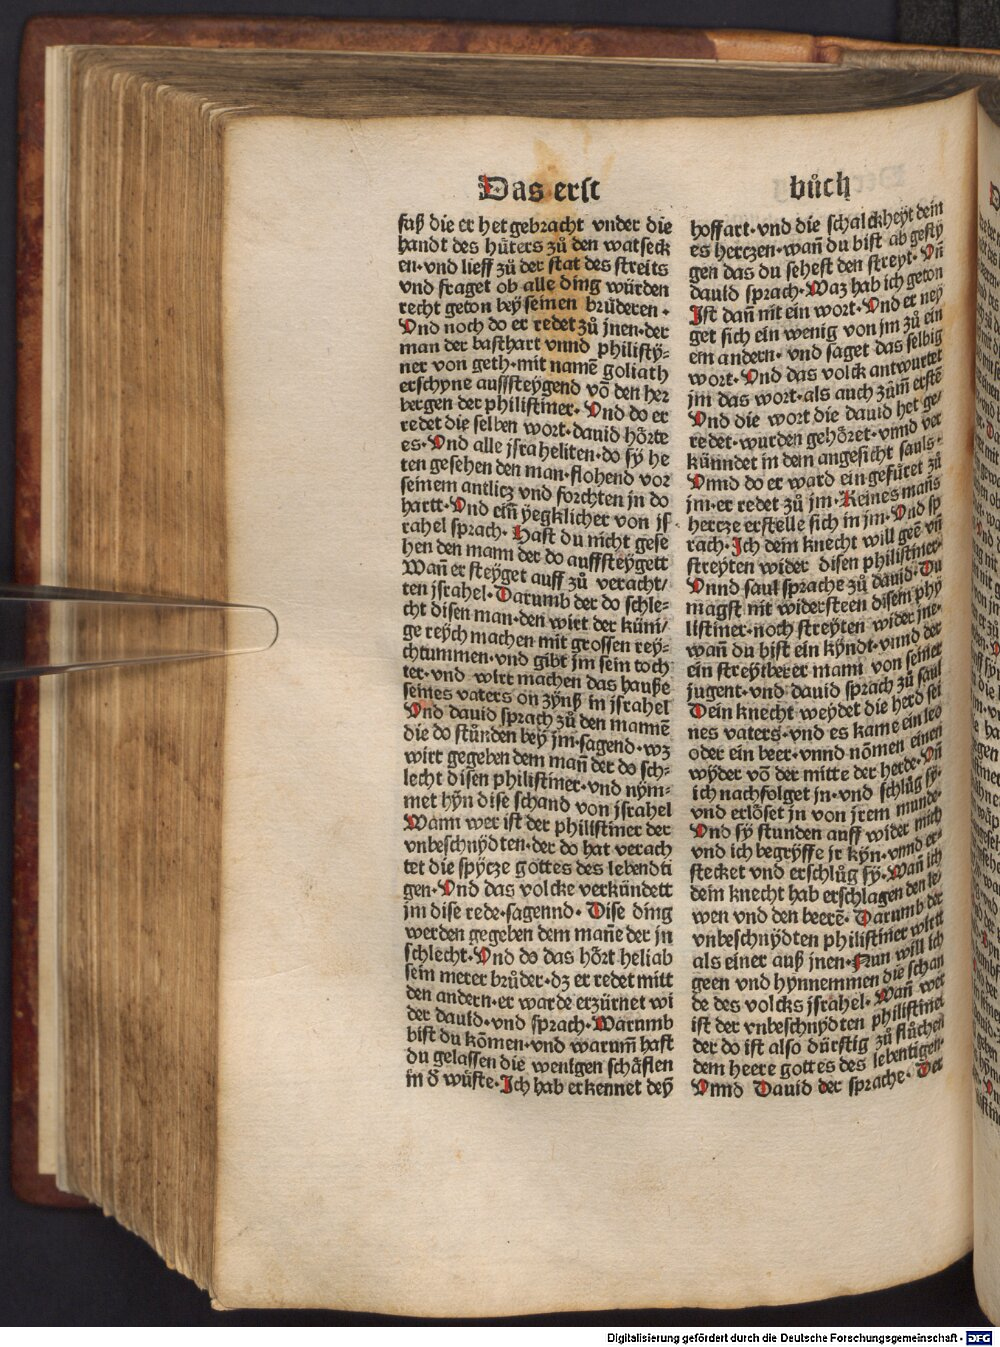 Das erst
bůch
faß die er het gebracht vnder die
handt des hůters zů den watseck
en·vnd lieff zů der stat des streits
vnd fraget ob alle ding würden
recht geton beÿ seinen brůderen·
Vnd noch do er redet zů jnen·der
man der basthart vnnd philistÿ-
ner von geth·mit namē goliath
erschyne auffsteÿgend vō den her
bergen der philistiner·Vnd do er
redet die selben wort·dauid hőrte
es·Vnd alle jsraheliten·do sÿ he
ten gesehen den man·flohend vor
seinem antlicz vnd forchten in do
hartt·Vnd eiñ ÿegklicher von js
rahel sprach·Hast du nicht gese
hen den mann der do auffsteÿgett
Wañ er steÿget auff zů veracht/
ten jsrahel·Darumb der do schle-
cht disen man·den wirt der küni/
ge reÿch machen mit grossen reÿ-
chtummen·vnd gibt jm sein toch
ter·vnd wirt machen das hauße
seines vaters on zÿnß in jsrahel
Vnd dauid sprach zů den mannē
die do stůnden beÿ jm·sagend·wz
wirt gegeben dem mañ der do sch-
lecht disen philistiner·vnd nÿm-
met hÿn dise schand von jsrahel
Wann wer ist der philistiner der
vnbeschnÿdten·der do hat verach
tet die spÿcze gottes des lebendti
gen·Vnd das volcke verkündett
jm dise rede·sagennd·Dise ding
werden gegeben dem mañe der jn
schlecht·Vnd do das hőrt heliab
sein merer brůder·dz er redet mitt
den andern·er warde erzürnet wi
der dauid·vnd sprach·Warumb
bist du kōmen·vnd warum̄ hast
du gelassen die wenigen schäflen
in d̄ wůste·Ich hab erkennet deÿ
hoffart·vnd die schalckheÿt dein
es herczen·wañ du bist ab gestÿ
gen das du sehest den streÿt·Vñ
dauid sprach·Waz hab ich geton
Ist dañ nit ein wort·Vnd er neÿ
get sich ein wenig von jm zů ein
em andern·vnd saget das selbig
wort·Vnd das volck antwurtet
jm das wort·als auch zům̄ erstē
Vnd die wort die dauid het ge/
redet·wurden gehőret·vnnd ver
künndet in dem angesicht sauls·
Vnnd do er ward ein gefůret zů
jm·er redet zů jm·Keines mañs
hercze erstelle sich in jm·Vnd sp
rach·Ich dein knecht will geē vñ
streÿten wider disen philistiner·
Vnnd saul sprache zů dauid·Du
magst nit widersteen disem phÿ
listiner·noch streÿten wider jne·
wañ du bist ein kÿndt·vnnd der
ein streÿtberer mann von seiner
jugent·vnd dauid sprach zů saul
Dein knecht weÿdet die herd sei
nes vaters·vnd es kame ein leo
oder ein beer·vnnd nōmen einen
wÿder vō der mitte der herde·Vñ
ich nachfolget jn·vnd schlůg sÿ·
vnd erlőset in von jrem munde·
Vnd sÿ stunden auff wider mich
vnd ich begrÿffe jr kÿn·vnnd er-
stecket vnd erschlůg sÿ·Wañ ich
dein knecht hab erschlagen den le/
wen vnd den beerē·Darumb der
vnbeschnÿdten philistiner wirtt
als einer auß jnen·Nun will ich
geen vnd hÿnnemmen die schan
de des volcks jsrahel·Wañ wer
ist der vnbeschnÿdten philistiner
der do ist also dürstig zů flůchen
dem heere gottes des lebentigen·
Vnnd Dauid der sprache·Der
Digitalisierung gefördert durch die Deutsche Forschungsgemeinschaft - DFG